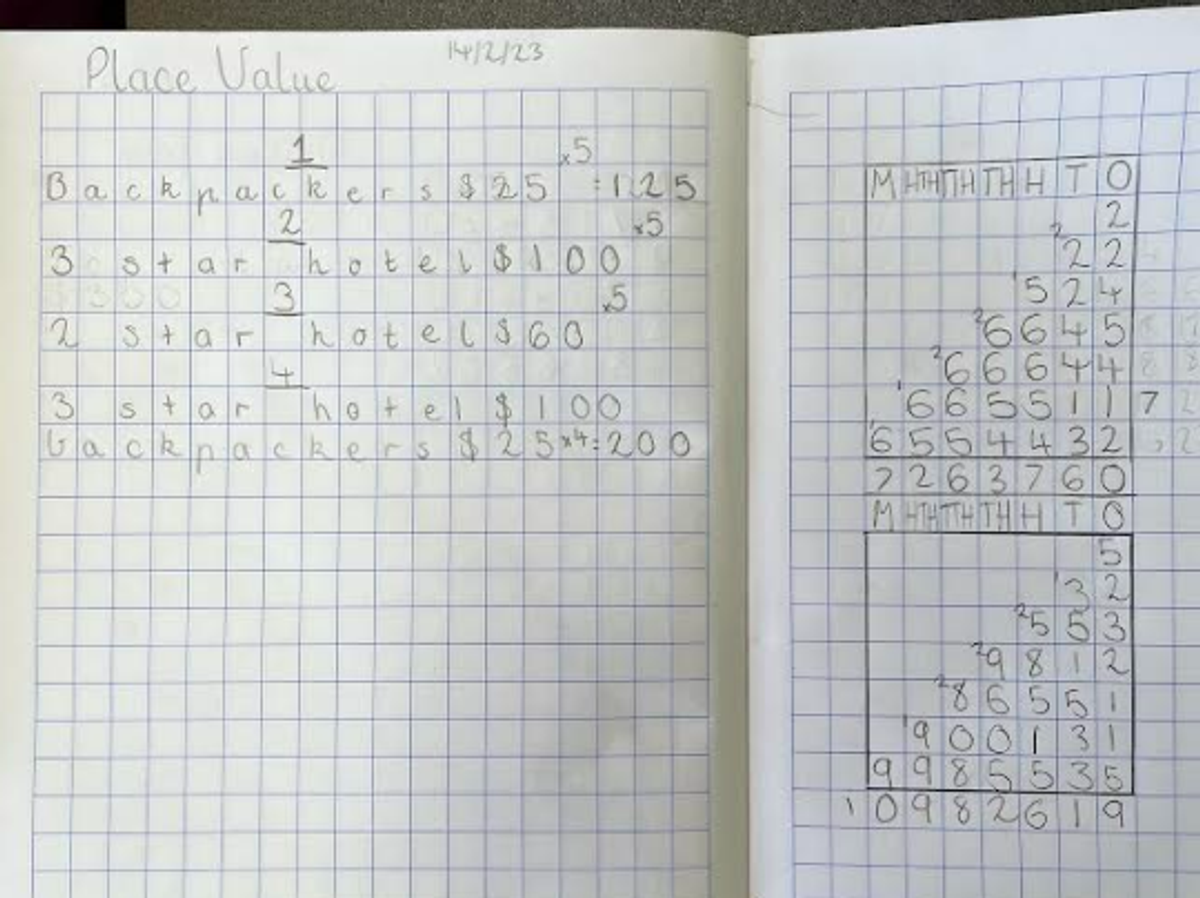 Place Value 14/2/23
1
Backpackers $25 x5 =125
2
3 star hotel $100 x5
3
2 star hotel $60 x5
4
3 star hotel $100
backpackers $25 x4=200
M HTH TTH TH H T O
2
2 22
1 524
2 6645
2 66644
1 665511 7
1 6554432
7263760
M HTH TTH TH H T O
5
1 32
2 553
2 9812
2 86551
1 900131
9985535
10982619